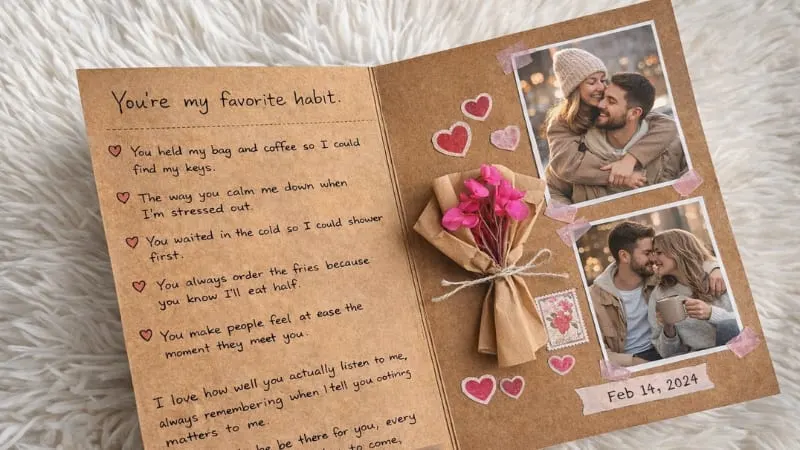 You're my favorite habit.
You held my bag and coffee so I could
find my keys.
The way you calm me down when
I'm stressed out.
You waited in the cold so I could shower
first.
You always order the fries because
you know I'll eat half.
You make people feel at ease the
moment they meet you.
I love how well you actually listen to me,
always remembering when I tell you
matters to me.
be there for you, every
to come,
Feb 14, 2024